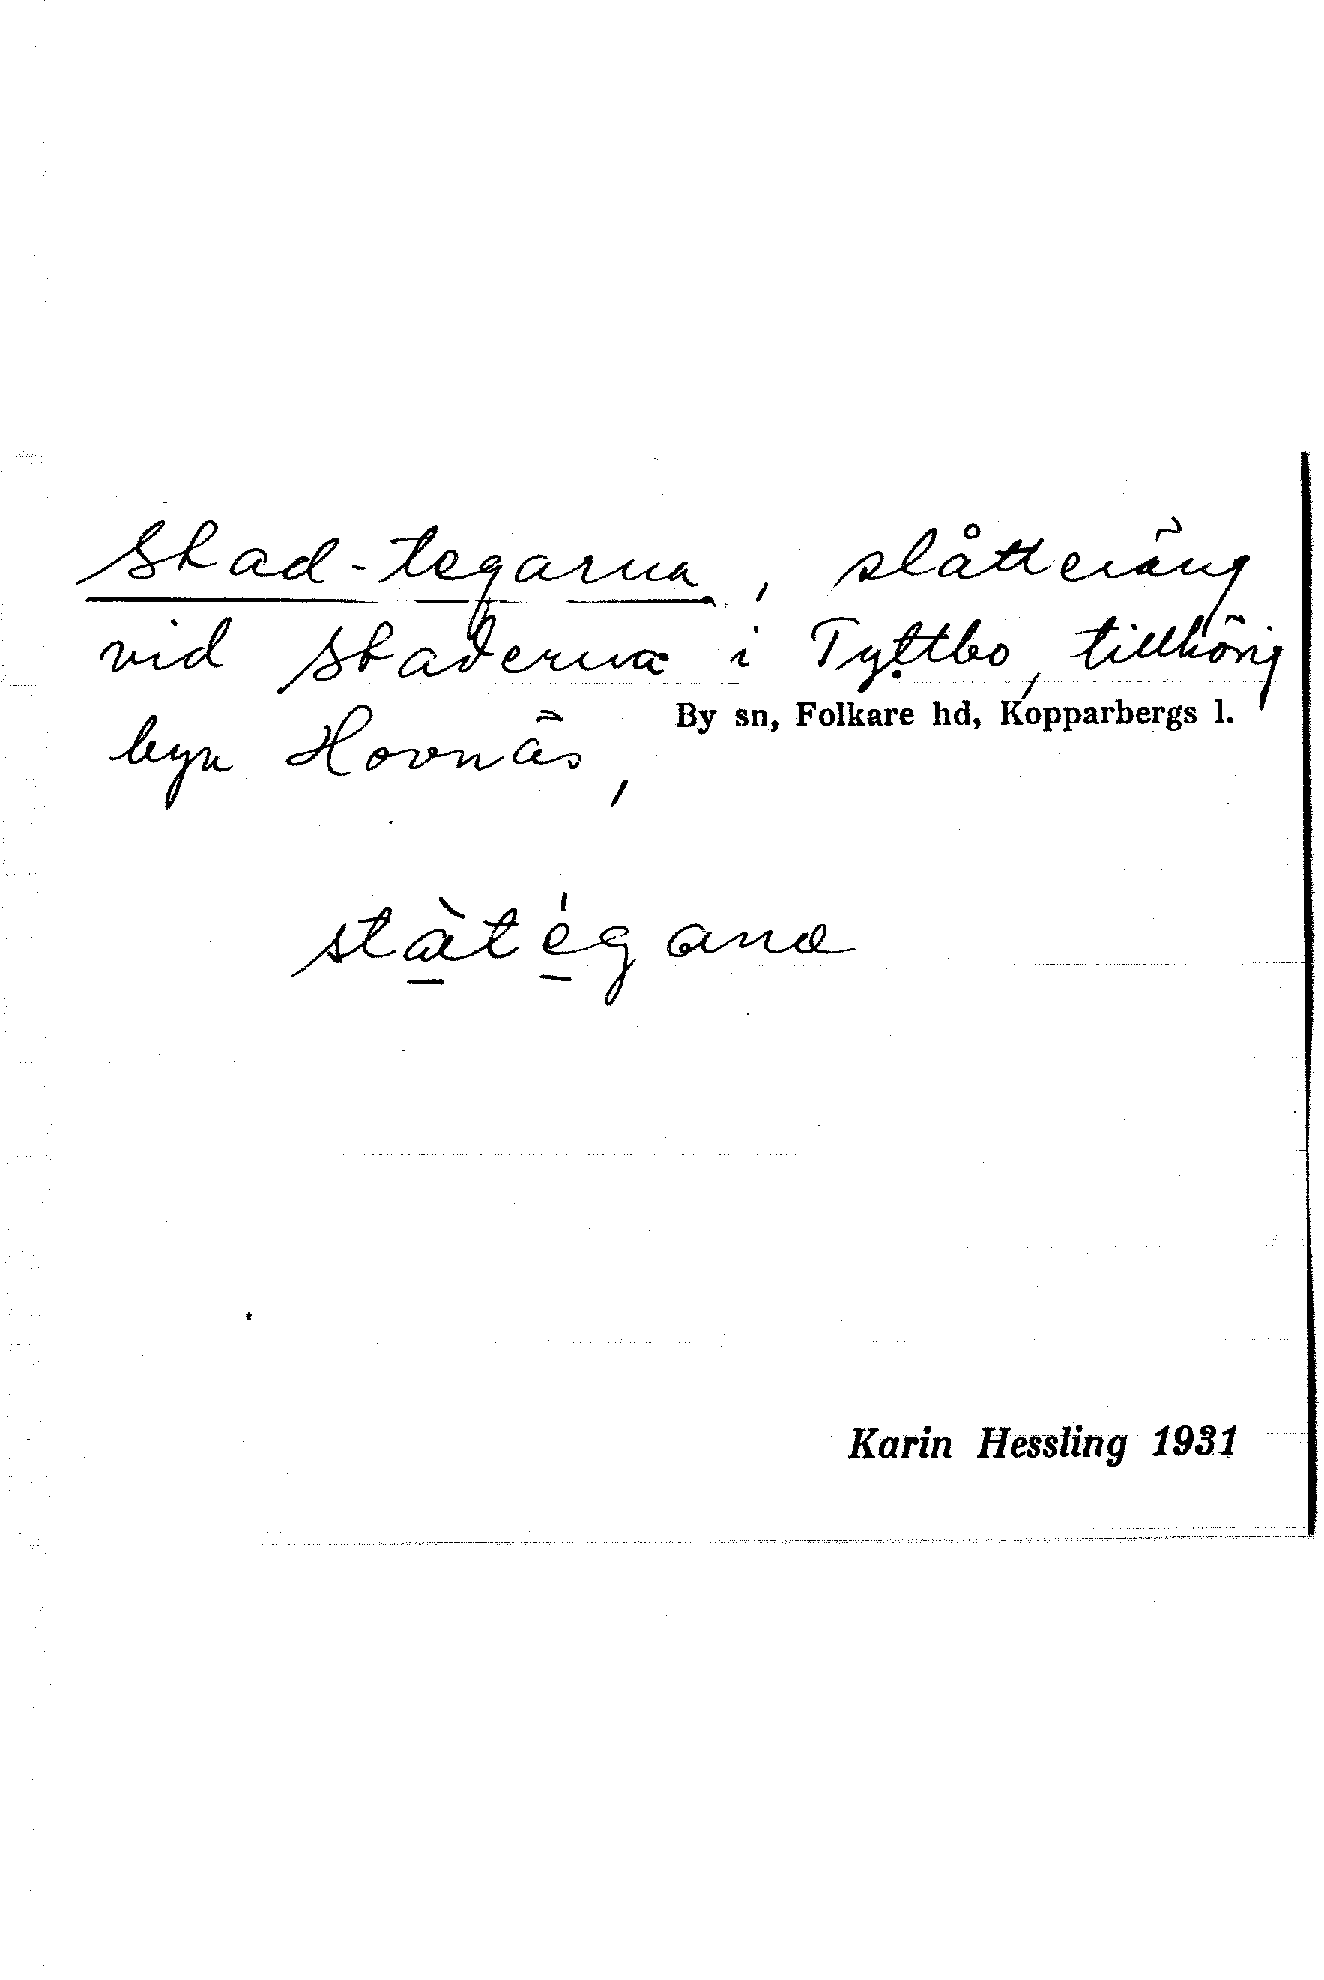 Stad-tegarna, slåtteräng
vid Staderna i Tyttbo, tillhörig
By sn, Folkare hd, Kopparbergs l.
byn Hovnäs,
stàtégana
Karin Hessling 1931